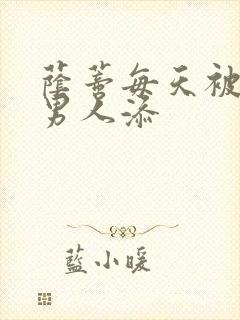 蔭蒂每天被
男人添
藍小暖